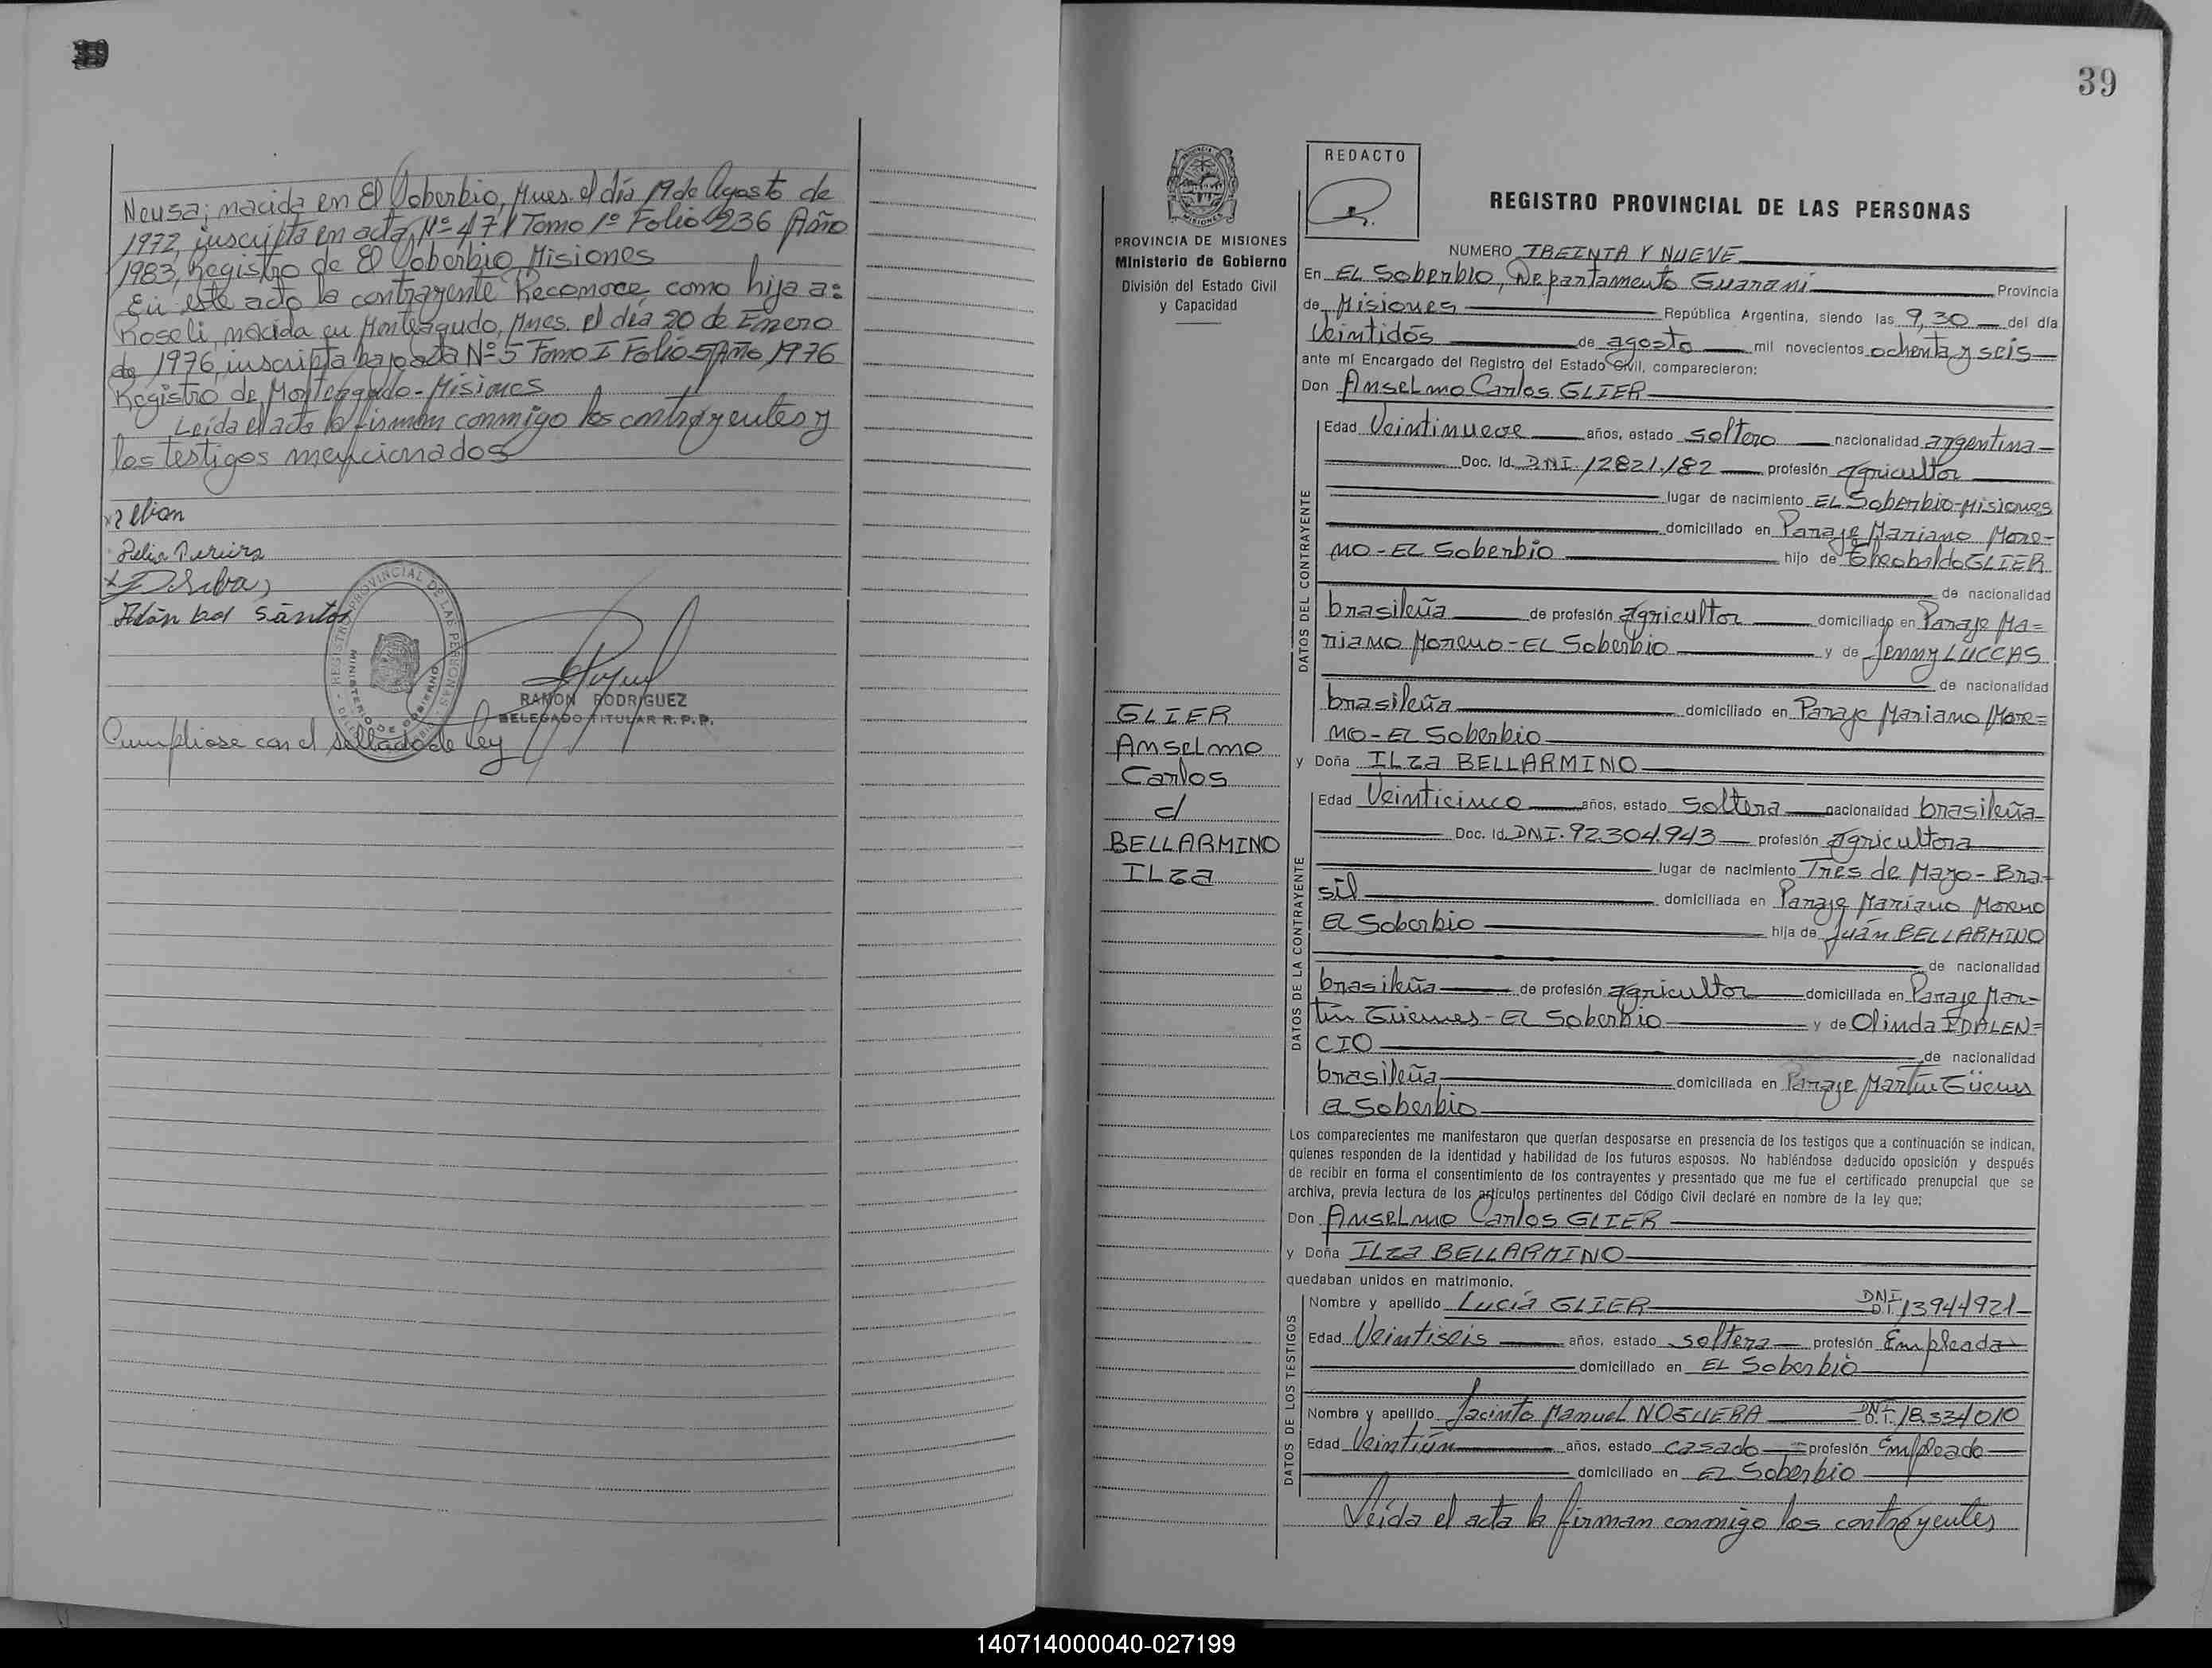 Neusa; nacida en El Soberbio, Mnes. el día 19 de Agosto de
1972, inscripta en acta Nº 471 Tomo 1º Folio 236 Año
1983, Registro de El Soberbio Misiones
En este acto la contrayente Reconoce como hija a:
Roseli, nacida en Monteagudo, Mnes. el día 20 de Enero
de 1976, inscripta bajo acta Nº 5 Tomo I Folio 5 Año 1976
Registro de Monteagudo - Misiones
Leída el acta la firman conmigo los contrayentes y
los testigos mencionados
dos Santos
REGISTRO PROVINCIAL DE LAS PERSONAS
MINISTERIO DE GOBIERNO
RAMON RODRIGUEZ
DELEGADO TITULAR R.P.P.
Cumpliose con el sellado de Ley
39
PROVINCIA DE MISIONES
Ministerio de Gobierno
División del Estado Civil
y Capacidad
GLIER
Anselmo
Carlos
c/
BELLARMINO
ILza
REDACTO
REGISTRO PROVINCIAL DE LAS PERSONAS
NUMERO TREINTA Y NUEVE
En EL Soberbio, Departamento Guaraní Provincia
de Misiones República Argentina, siendo las 9,30 del día
Veintidós de agosto mil novecientos ochenta y seis
ante mí Encargado del Registro del Estado Civil, comparecieron:
Don Anselmo Carlos GLIER
DATOS DEL CONTRAYENTE
Edad Veintinueve años, estado soltero nacionalidad argentina
Doc. Id. DNI. 12821.182 profesión agricultor
lugar de nacimiento EL Soberbio-Misiones
domiciliado en Paraje Mariano More-
no - EL Soberbio hijo de Theobaldo GLIER
de nacionalidad
brasileña de profesión agricultor domiciliado en Paraje Ma=
riano Moreno - EL Soberbio y de Jenny LUCCAS
de nacionalidad
brasileña domiciliado en Paraje Mariano More=
no - EL Soberbio
y Doña ILza BELLARMINO
DATOS DE LA CONTRAYENTE
Edad Veinticinco años, estado Soltera nacionalidad brasileña
Doc. Id. DNI. 92.304.943 profesión agricultora
lugar de nacimiento Tres de Mayo - Bra-
sil domiciliada en Paraje Mariano Moreno
EL Soberbio hija de Juán BELLARMINO
de nacionalidad
brasileña de profesión agricultor domiciliada en Paraje Mar=
tín Güemes - EL Soberbio y de Olinda IDALEN=
CIO de nacionalidad
brasileña domiciliada en Paraje Martín Güemes
EL Soberbio
Los comparecientes me manifestaron que querían desposarse en presencia de los testigos que a continuación se indican,
quienes responden de la identidad y habilidad de los futuros esposos. No habiéndose deducido oposición y después
de recibir en forma el consentimiento de los contrayentes y presentado que me fue el certificado prenupcial que se
archiva, previa lectura de los artículos pertinentes del Código Civil declaré en nombre de la ley que:
Don Anselmo Carlos GLIER
y Doña ILza BELLARMINO
quedaban unidos en matrimonio.
DATOS DE LOS TESTIGOS
Nombre y apellido Lucía GLIER DNI D.I. 13944921
Edad Veintiseis años, estado soltera profesión Empleada
domiciliado en EL Soberbio
Nombre y apellido Jacinto Manuel NOGUERA DNI D.I. 18.334010
Edad Veintiún años, estado casado profesión Empleado
domiciliado en EL Soberbio
Leída el acta la firman conmigo los contrayentes
140714000040-027199